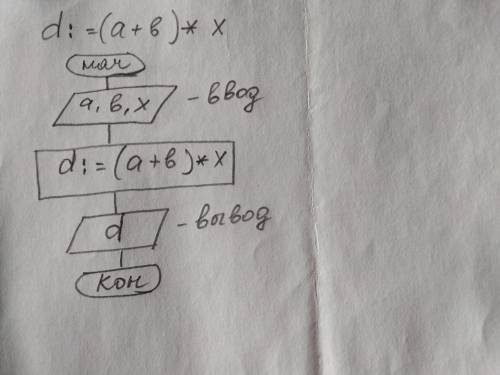 d:=(a+в)* x
нач
a, в, x - ввод
d:=(a+в)*x
d - вывод
кон